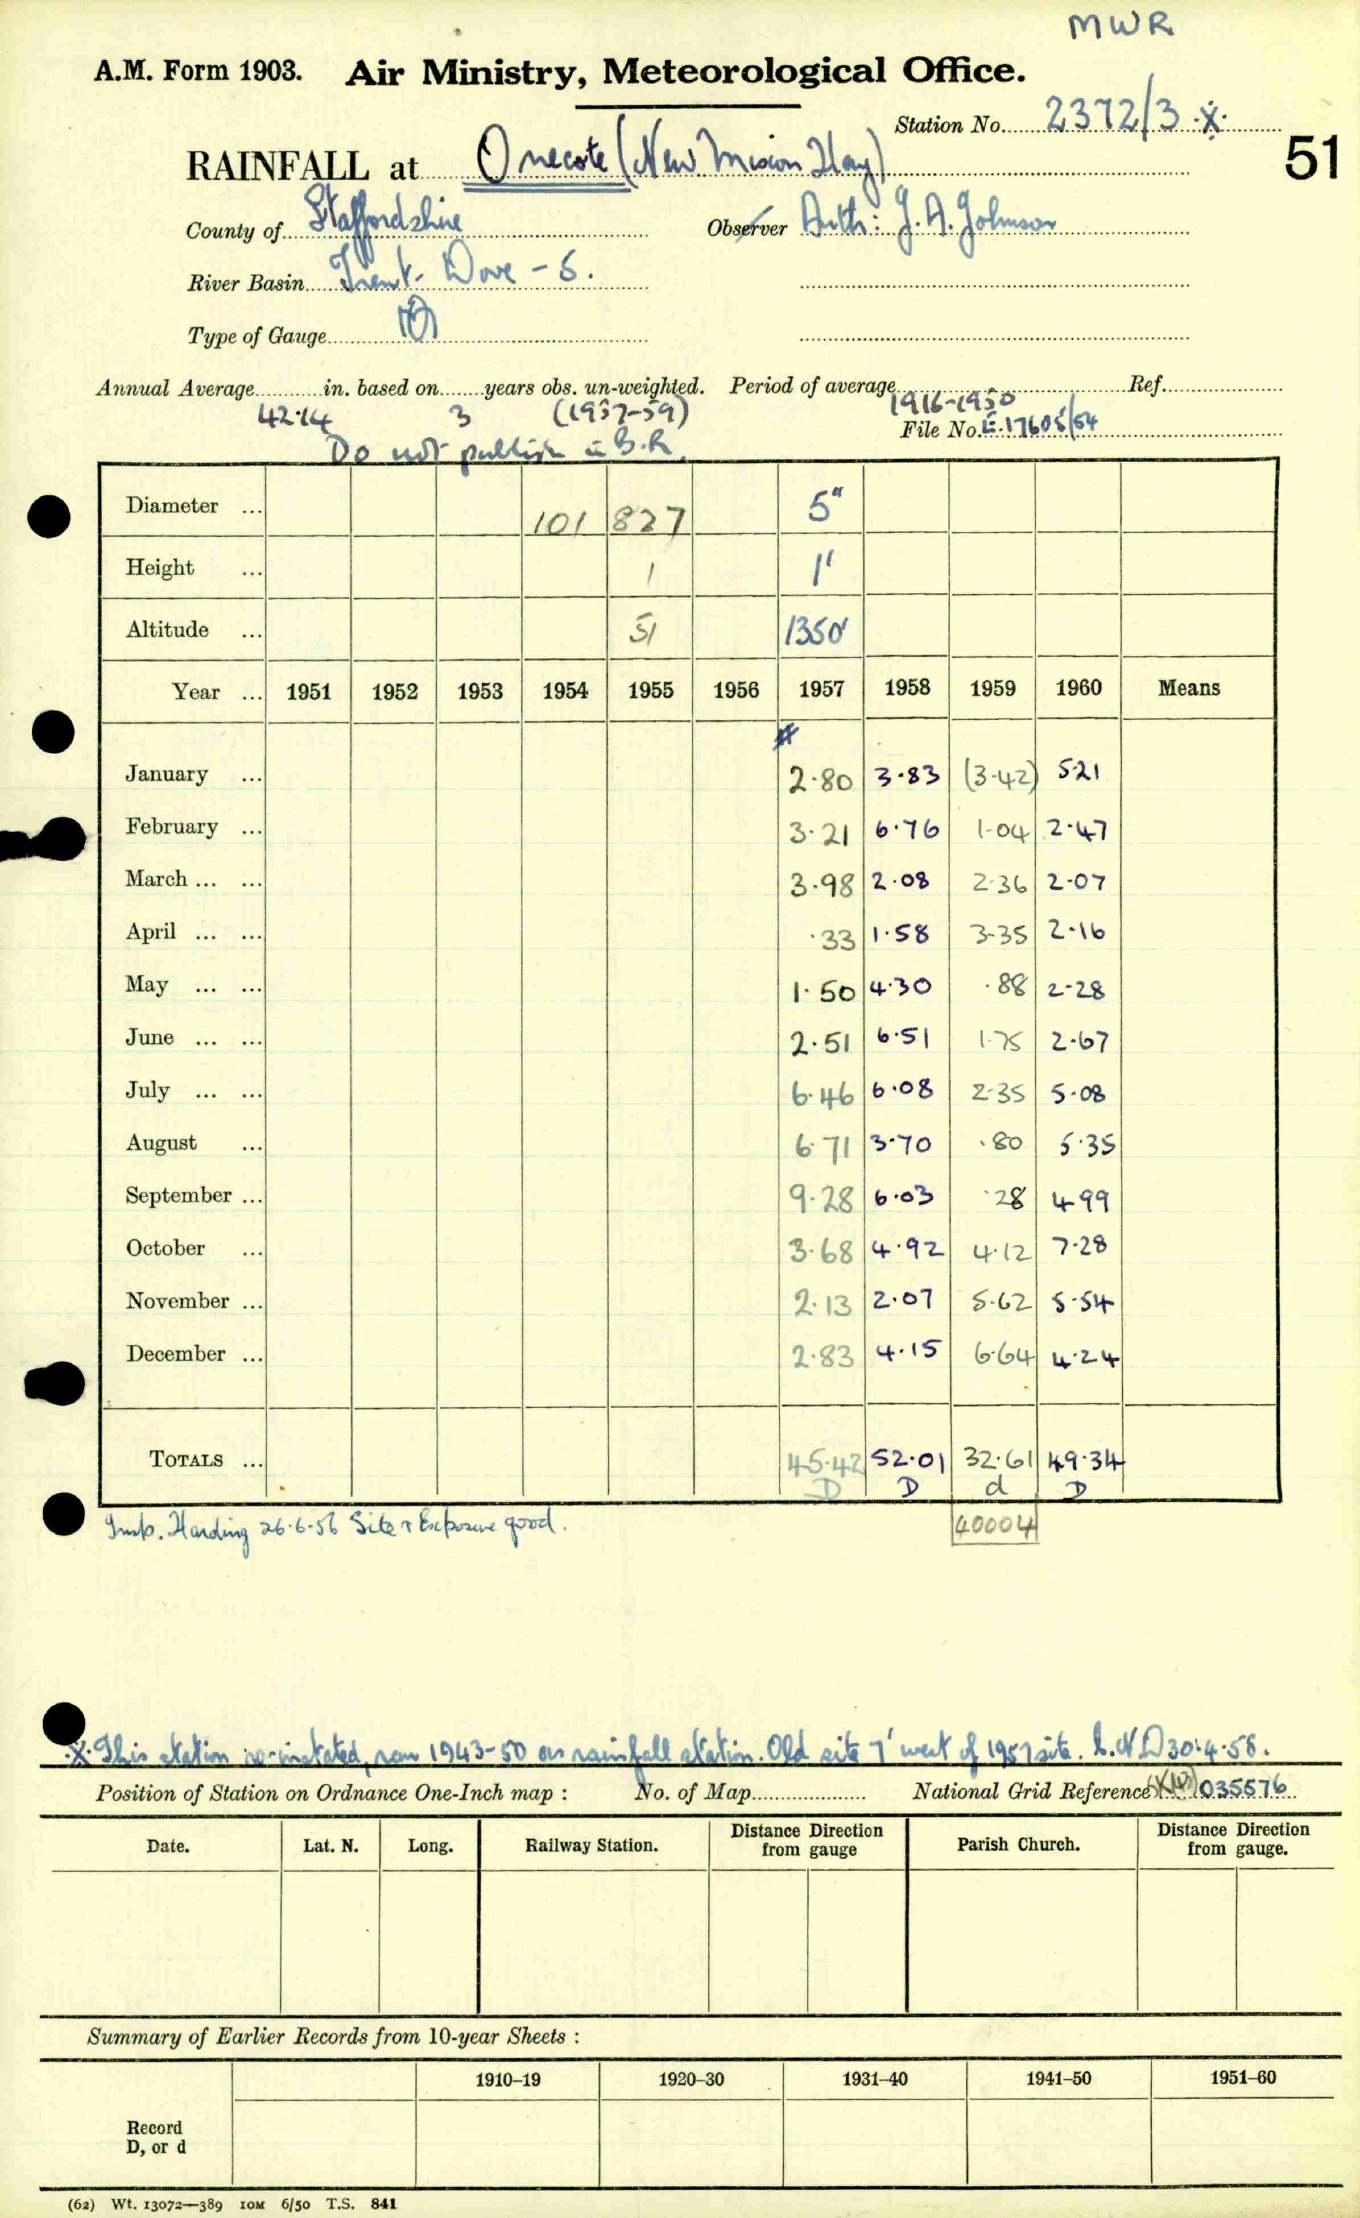 MWR
A.M. Form 1903. Air Ministry, Meteorological Office.
Station No. 2372/3 X
51
RAINFALL at Onecote (New Mixon Hay)
County of Staffordshire Observer Auth: J. A. Johnson
River Basin Trent - Dove - S.
Type of Gauge
Annual Average in. based on years obs. un-weighted. Period of average Ref.
42.14 3 (1957-59) 1916-1950
File No. E.17605/54
Do not publish in B.R.
Diameter ... 101 827 5"
Height ... 1 1'
Altitude ... 51 1350'
Year ... 1951 1952 1953 1954 1955 1956 1957 1958 1959 1960 Means
January ... 2.80 3.83 (3.42) 5.21
February ... 3.21 6.76 1.04 2.47
March ... ... 3.98 2.08 2.36 2.07
April ... ... .33 1.58 3.35 2.16
May ... ... 1.50 4.30 .88 2.28
June ... ... 2.51 6.51 1.75 2.67
July ... ... 6.46 6.08 2.35 5.08
August ... 6.71 3.70 .80 5.35
September ... 9.28 6.03 .28 4.99
October ... 3.68 4.92 4.12 7.28
November ... 2.13 2.07 5.62 5.54
December ... 2.83 4.15 6.64 4.24
TOTALS ... 45.42 52.01 32.61 49.34
D D d D
Insp. Harding 26.6.56 Site & Exposure good.
40004
X This station re-instated, ran 1943-50 as rainfall station. Old site 7' west of 1957 site. 30.4.58.
Position of Station on Ordnance One-Inch map : No. of Map National Grid Reference 035576
Date. Lat. N. Long. Railway Station. Distance Direction from gauge Parish Church. Distance Direction from gauge.
Summary of Earlier Records from 10-year Sheets :
1910–19 1920–30 1931–40 1941–50 1951–60
Record
D, or d
(62) Wt. 13072—389 10M 6/50 T.S. 841